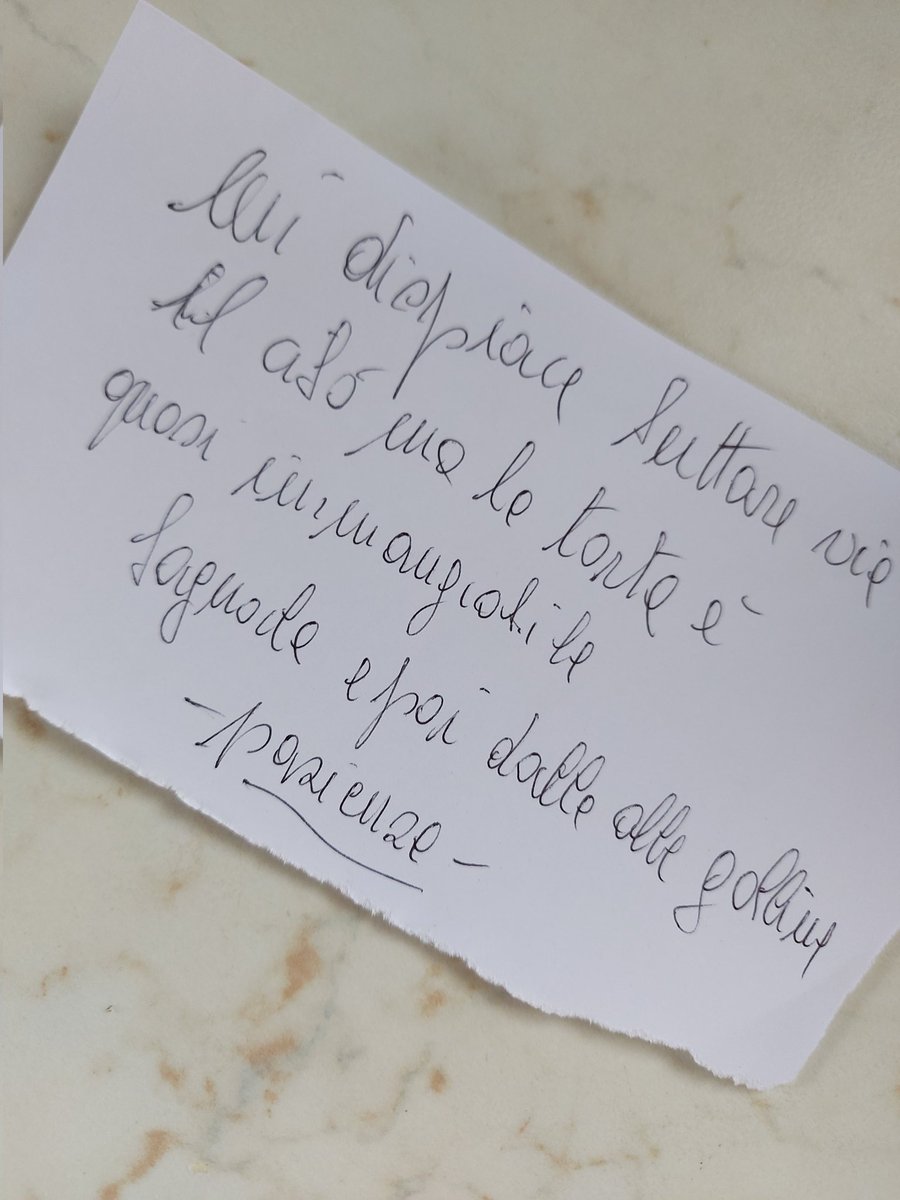 Mi dispiace buttare via
il cibo ma la torta è
quasi immangiabile
bagnala e poi dalla alle galline
- pazienza -